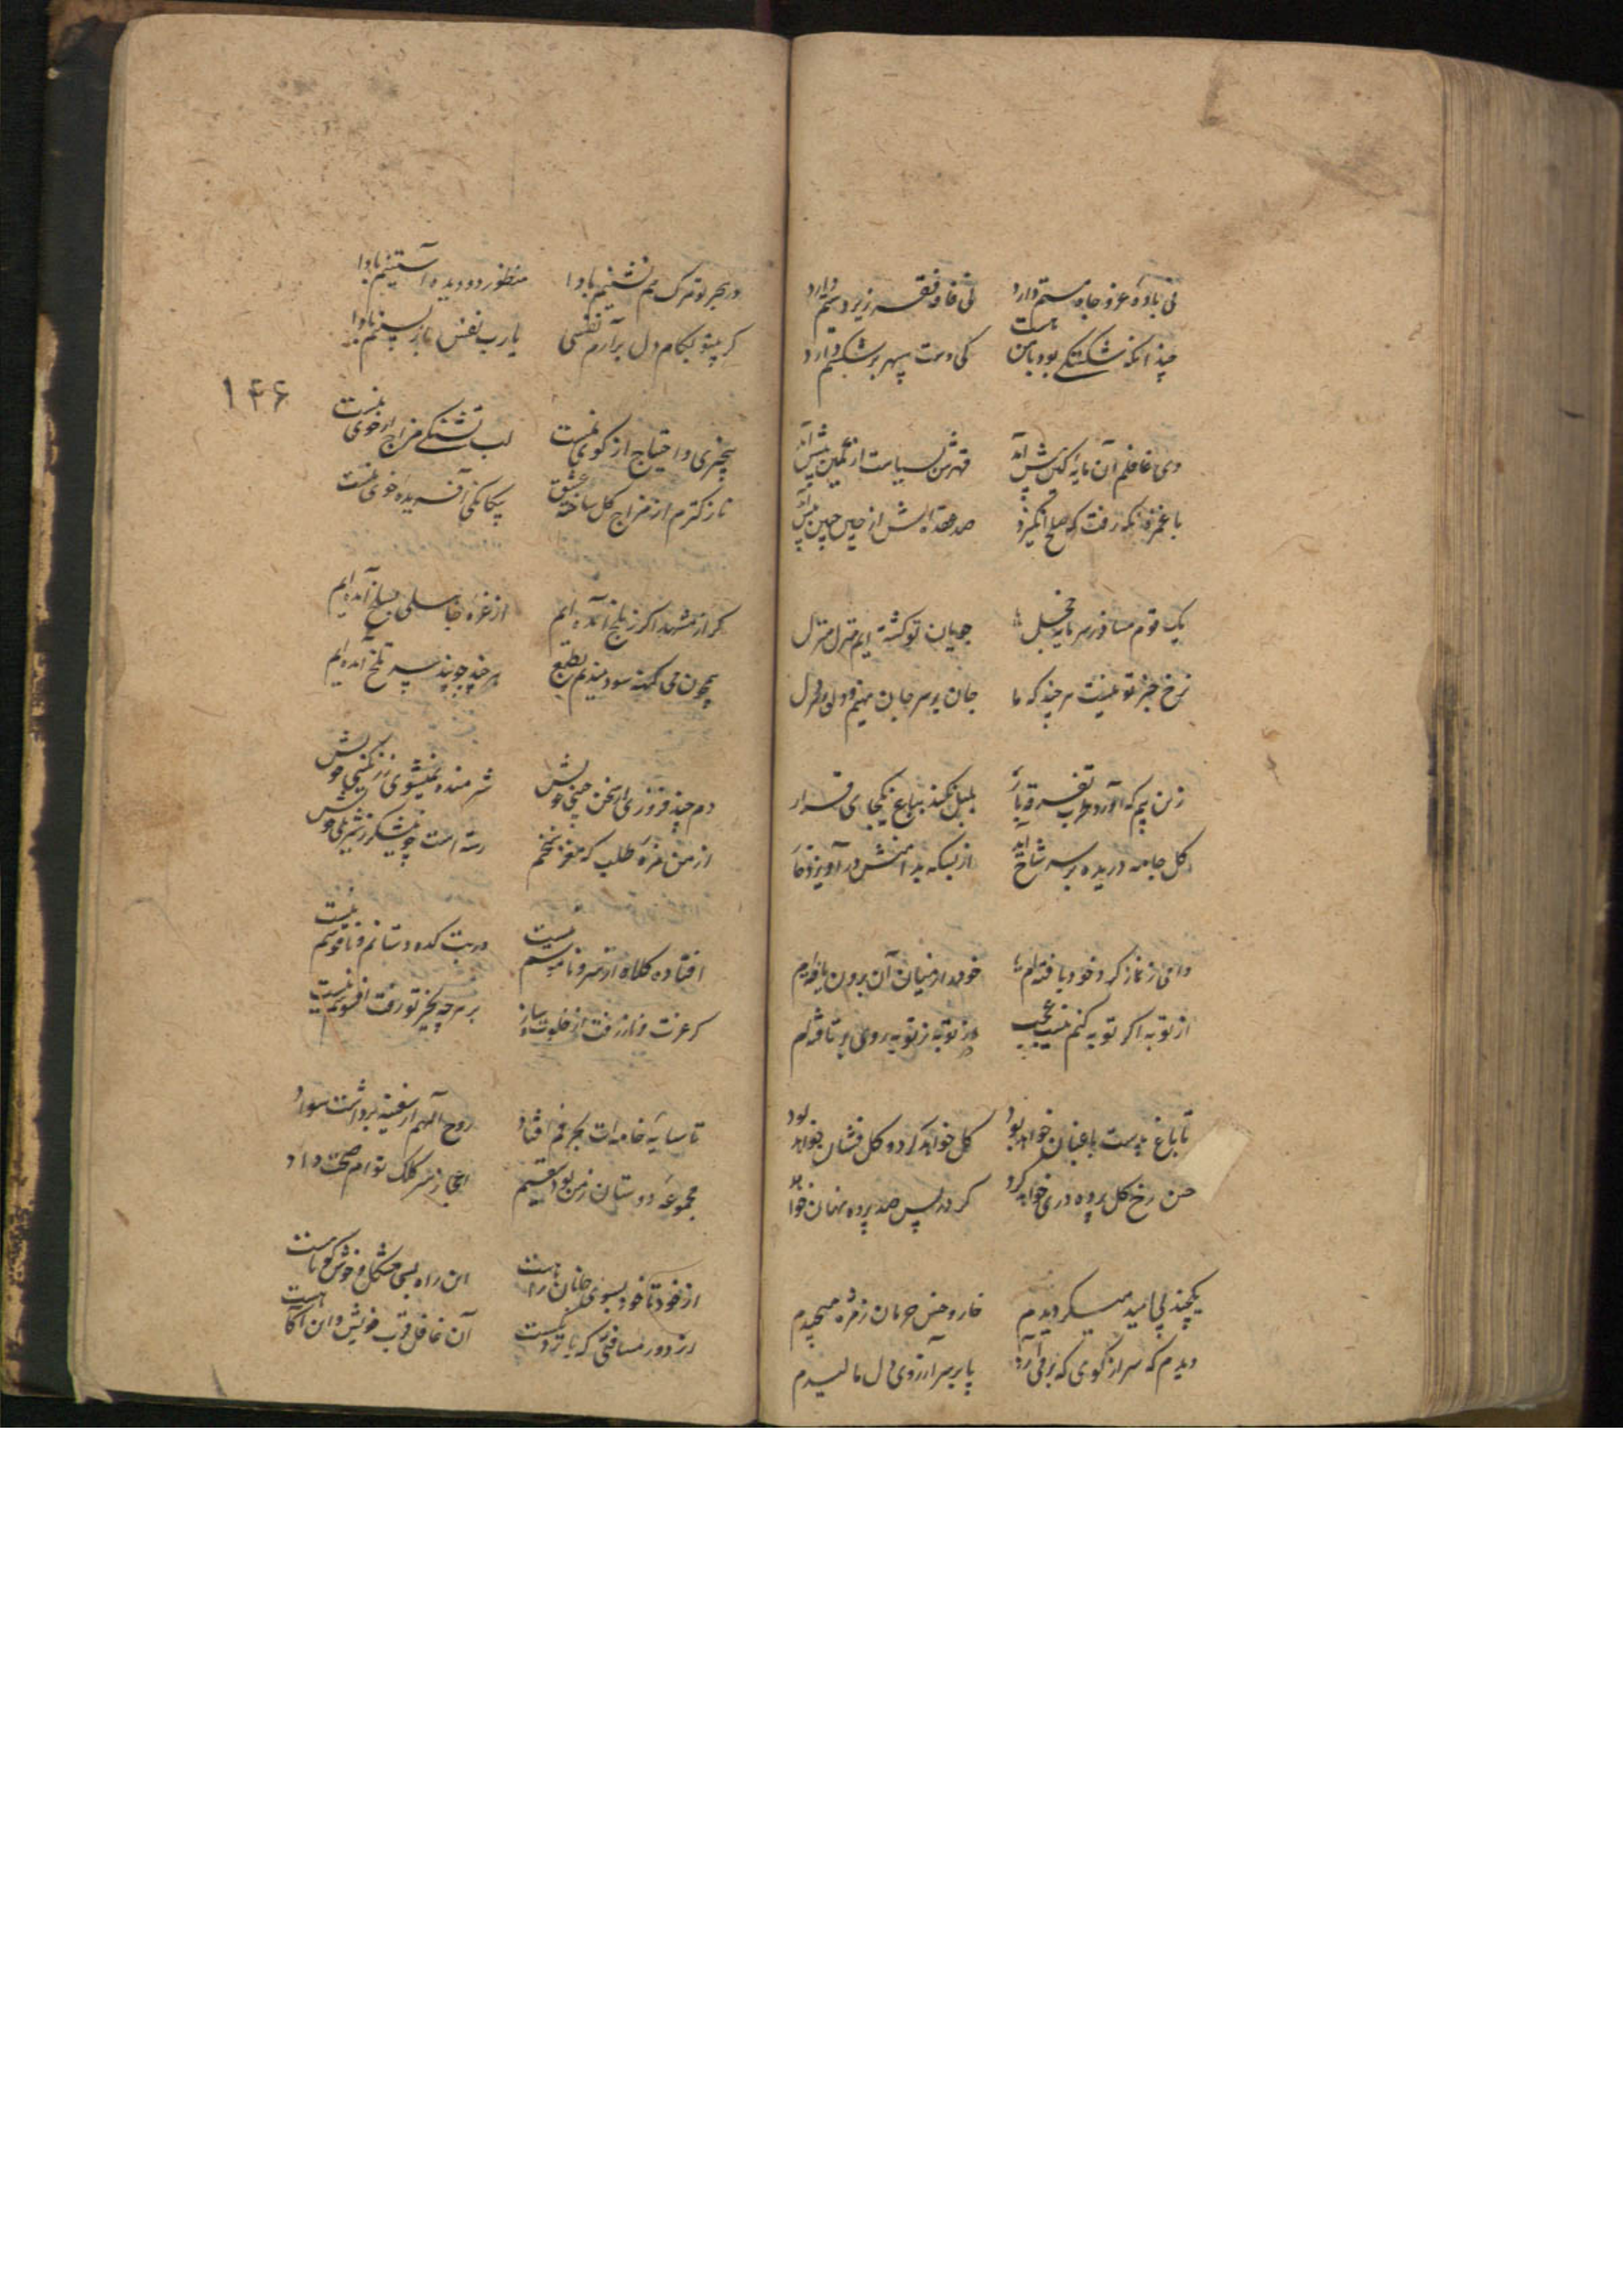 نی باده عز و جاه مستم دارد
نی فاقه فقر زیر دستم دارد
چندانکه شکستگی بود با من هست
کی دست سپهر بر شکستم دارد
دی غافلم آن مایه کین پیش آمد
قهرش بسیاست از کمین پیش آمد
با غمزه نکه رفت که صلح انگیزد
صد عقده اش از چین جبین پیش آمد
یک قوم مسافریم
جویان تو کشته ایم منزل منزل
نرخ جز تو نیست هر چند که ما
جان بر سر جان نهیم و دل بر دل
زین بیم که آورد طرب تفرقه بار
بلبل نکند بباغ یکجای قرار
کل جامه دریده بر سر شاخ آید
از بسکه بدامنش در آویزد خار
دامی ز نماز کرد خود بافته ام
خود را ز میان آن برون یافته ام
از توبه اکر توبه کنم نیست عجب
در توبه ز توبه روی بر تافته ام
تا باغ بدست باغبان خواهد بود
کل خواهد کرد و کل فشان خواهد بود
حسن رخ کل پرده دری خواهد کرد
کر در پس صد پرده نهان خواهد بود
یکچند پی امید میکردیدم
خار و خس حرمان ز مژه میچیدم
دیدم که سر از کوی که بر می آرد
پا بر سر آرزوی دل مالیدم
در بحر تو ترک هم نشینم بادا
منظور دو دیده آستینم بادا
کر بیتو بکام دل برآرم نفسی
یا رب نفس باز پسینم بادا
۱۴۶
بیچیزی و احتیاج از کوی نیست
لب تشنکی مزاج از خوی نیست
نازکترم از مزاج کل ساخته عشق
بیکانکی آفریده خوی نیست
کر از مشهد اکر ز بلخ آمده ایم
از غره جا بسلخ آمده ایم
همچون می کهنه سودمندیم بطبع
هر چند چو پند سر بسر تلخ آمده ایم
دم چند فروزی از سخن چینی خویش
شرمنده نمیشوی ز رنکینی خویش
از من مزه طلب که مغز سخنم
رسته است چو نیشکر ز شیرینی خویش
افتاده کلاه از سر و ناموسم نیست
در بت کده دستانم و ناقوسم نیست
کر عزت و ناز رفت از خلوت و ساز
بر هر چه بجز تو رفت افسوسم نیست
تا سایه خامه ات بحرفم افتاد
روح الهم از سفینه برداشت سواد
مجموعه دوستان ز من بود سقیم
اعجاز سر کلک توام صحت داد
از خود تا خود بسوی جانان راهست
این راه بسی مشکل و خوش کوتاهست
از دور مسافتی که نازدیکست
آن غافل قرب خویش و این آکاهست